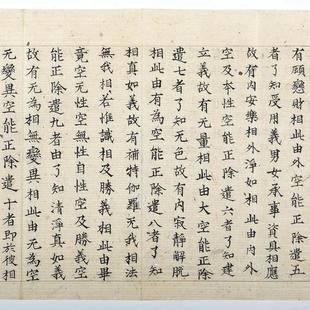 有顧戀財相此由外空能正除遣五
者了知受用義男女承事資具相應
故有内安樂相外淨妙相此由内外
空及本性空能正除遣六者了知建
立義故有无量相此由大空能正除
遣七者了知无色故有内寂靜解脫
相此由有為空能正除遣八者了知
相真如義故有補特伽羅无我相法
無我相若惟識相及勝義相此由畢
竟空无性空无性自性空及勝義空
能正除遣九者由了知清淨真如義
故有无為相無變異相此由无為空
无變異空能正除遣十者即於彼相